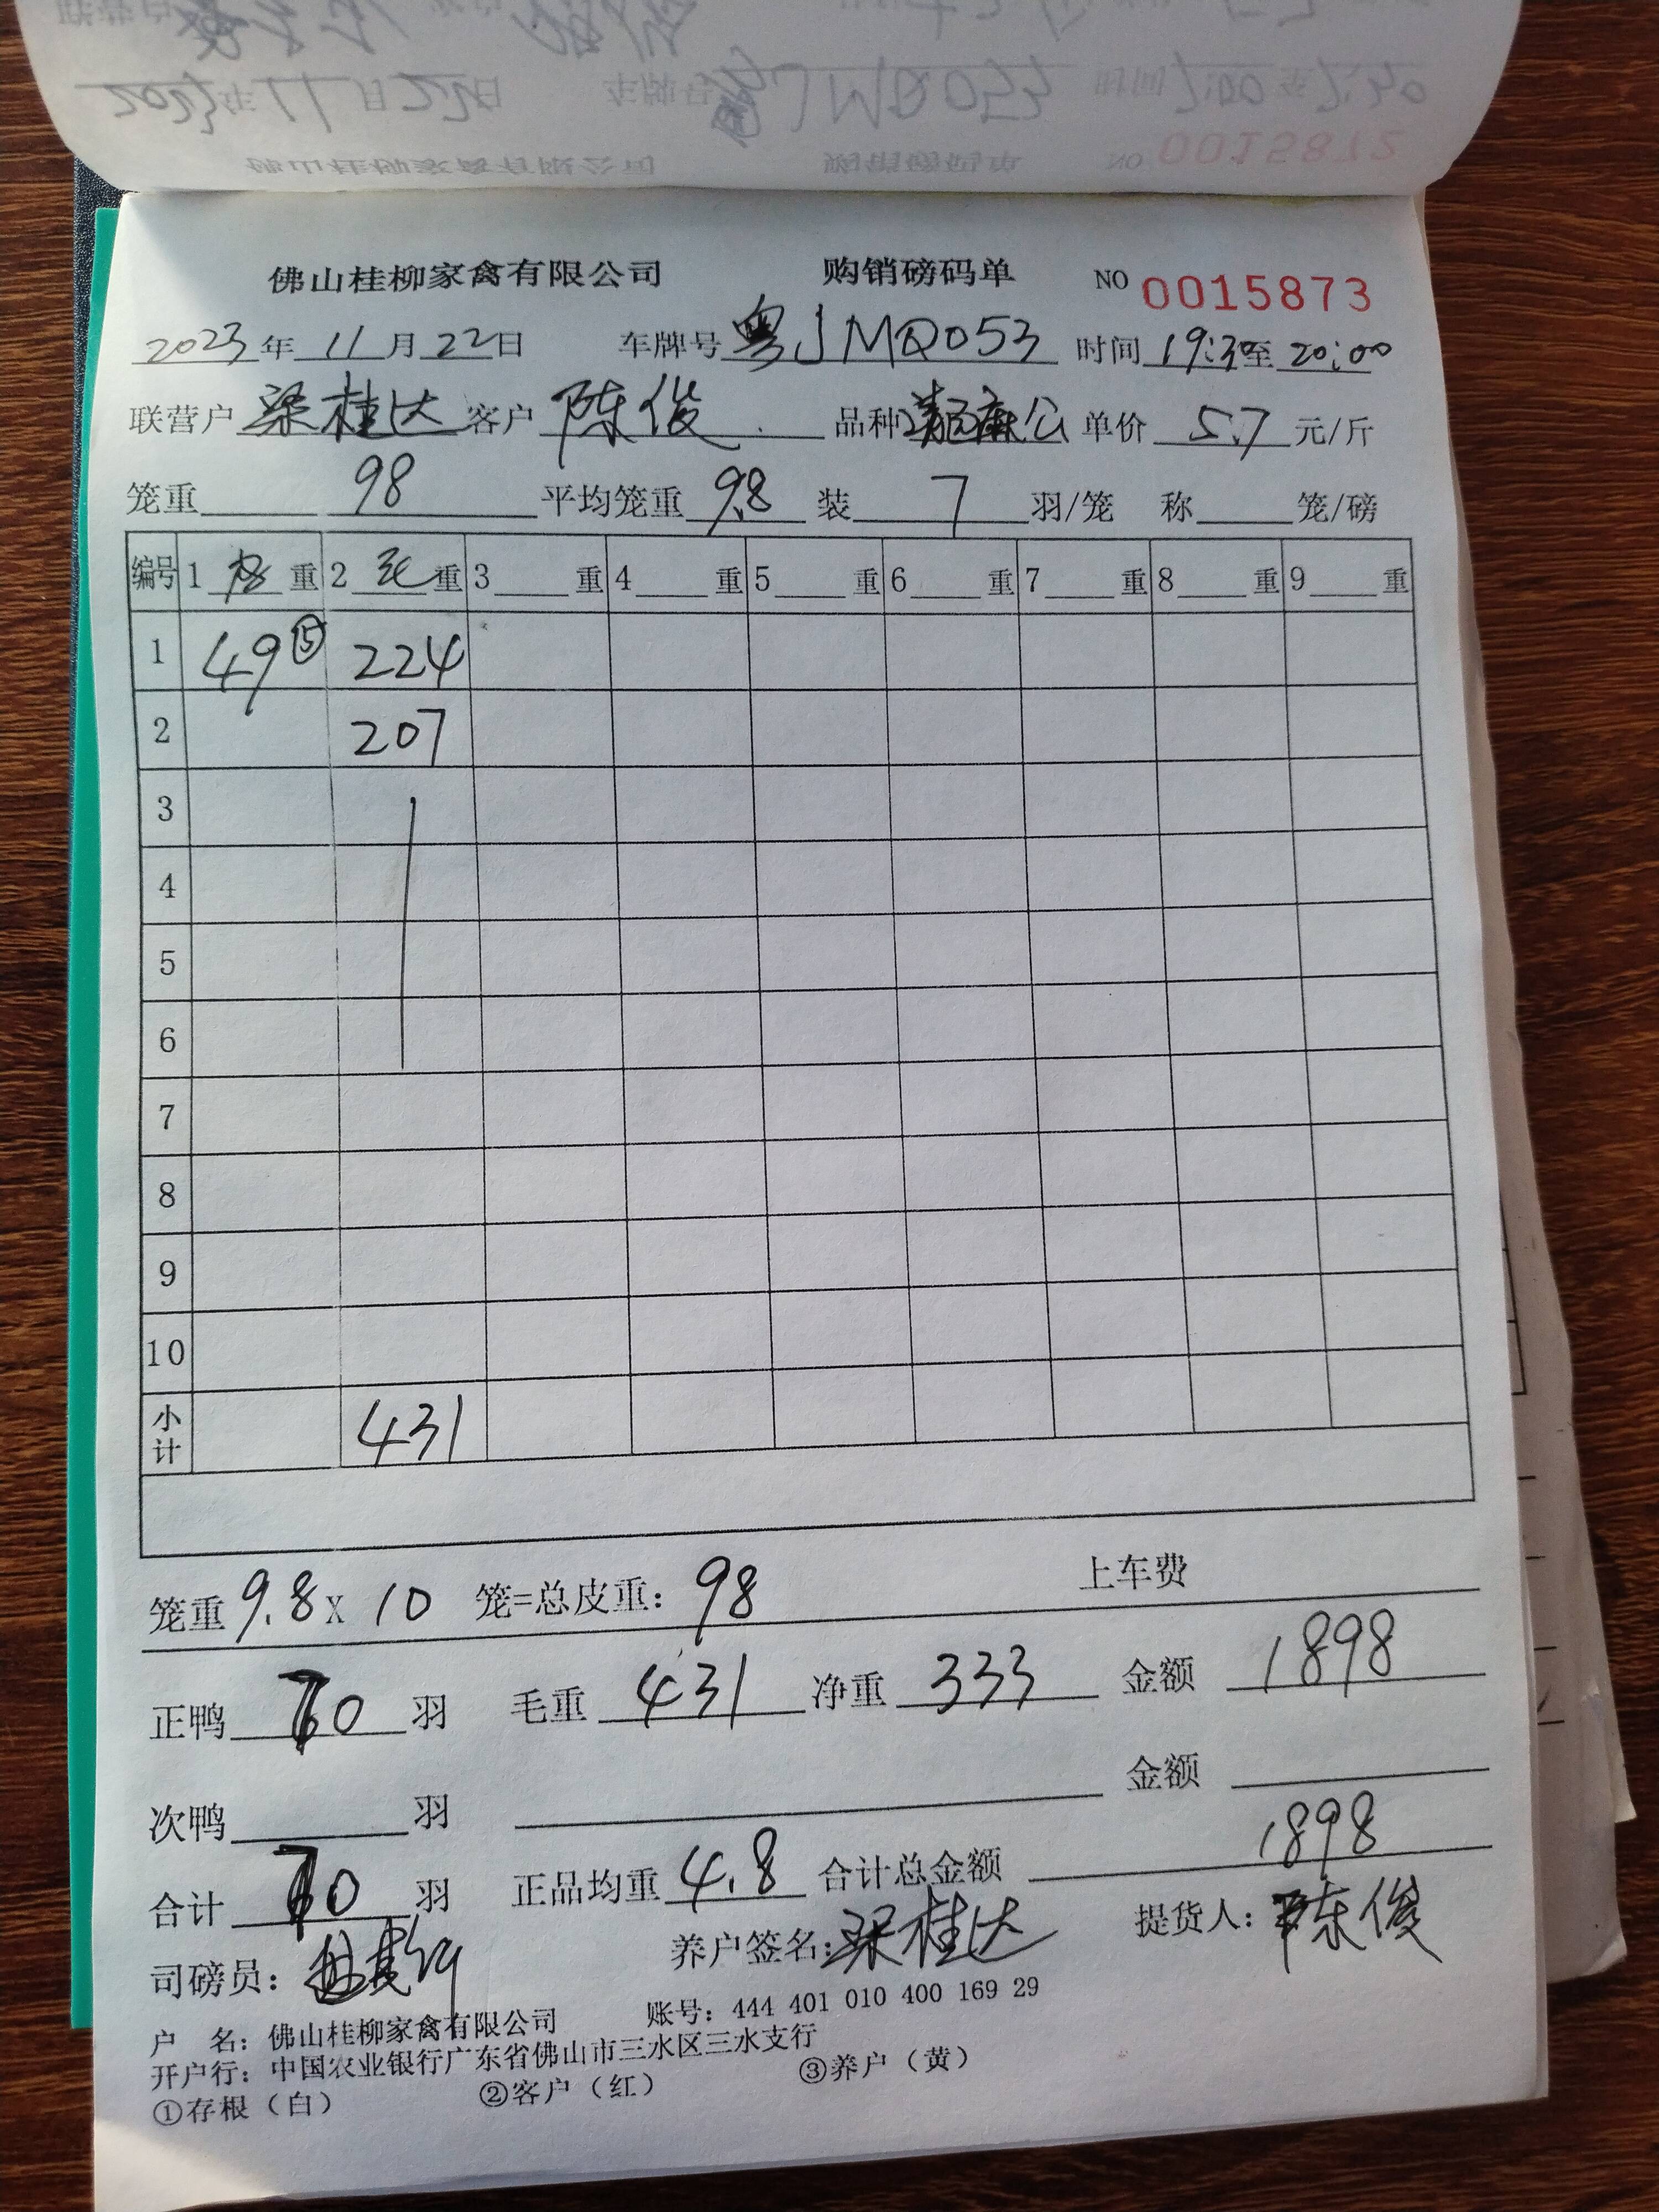 佛山桂柳家禽有限公司 购销磅码单 NO 0015873
2023年11月22日 车牌号粤JMQ053 时间19:30至20:00
联营户梁桂达客户陈俊 品种 公 单价5.7元/斤
笼重 98 平均笼重9.8 装7羽/笼 称 笼/磅
编号 1 重 2 毛重 3 重 4 重 5 重 6 重 7 重 8 重 9 重
1 49⑤ 224
2 207
3
4
5
6
7
8
9
10
小计 431
笼重9.8x10 笼=总皮重: 98 上车费
正鸭70羽 毛重431净重333 金额1898
次鸭 羽 金额
合计70羽 正品均重4.8合计总金额1898
司磅员: 养户签名:梁桂达 提货人:陈俊
户 名: 佛山桂柳家禽有限公司 账号: 444 401 010 400 169 29
开户行: 中国农业银行广东省佛山市三水区三水支行
①存根(白) ②客户(红) ③养户(黄)